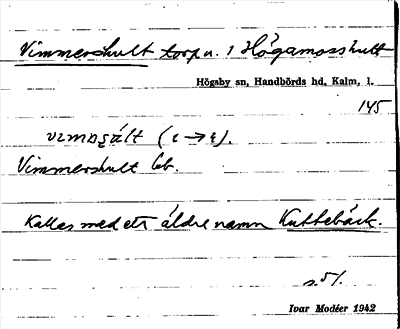 Vimmershult torp u. 1 Högamosshult
Högsby sn, Handbörds hd, Kalm, l.
145
Vimmershult bb.
Kallas med ett äldre namn Kuttebäck.
s. 51.
Ivar Modéer 1942